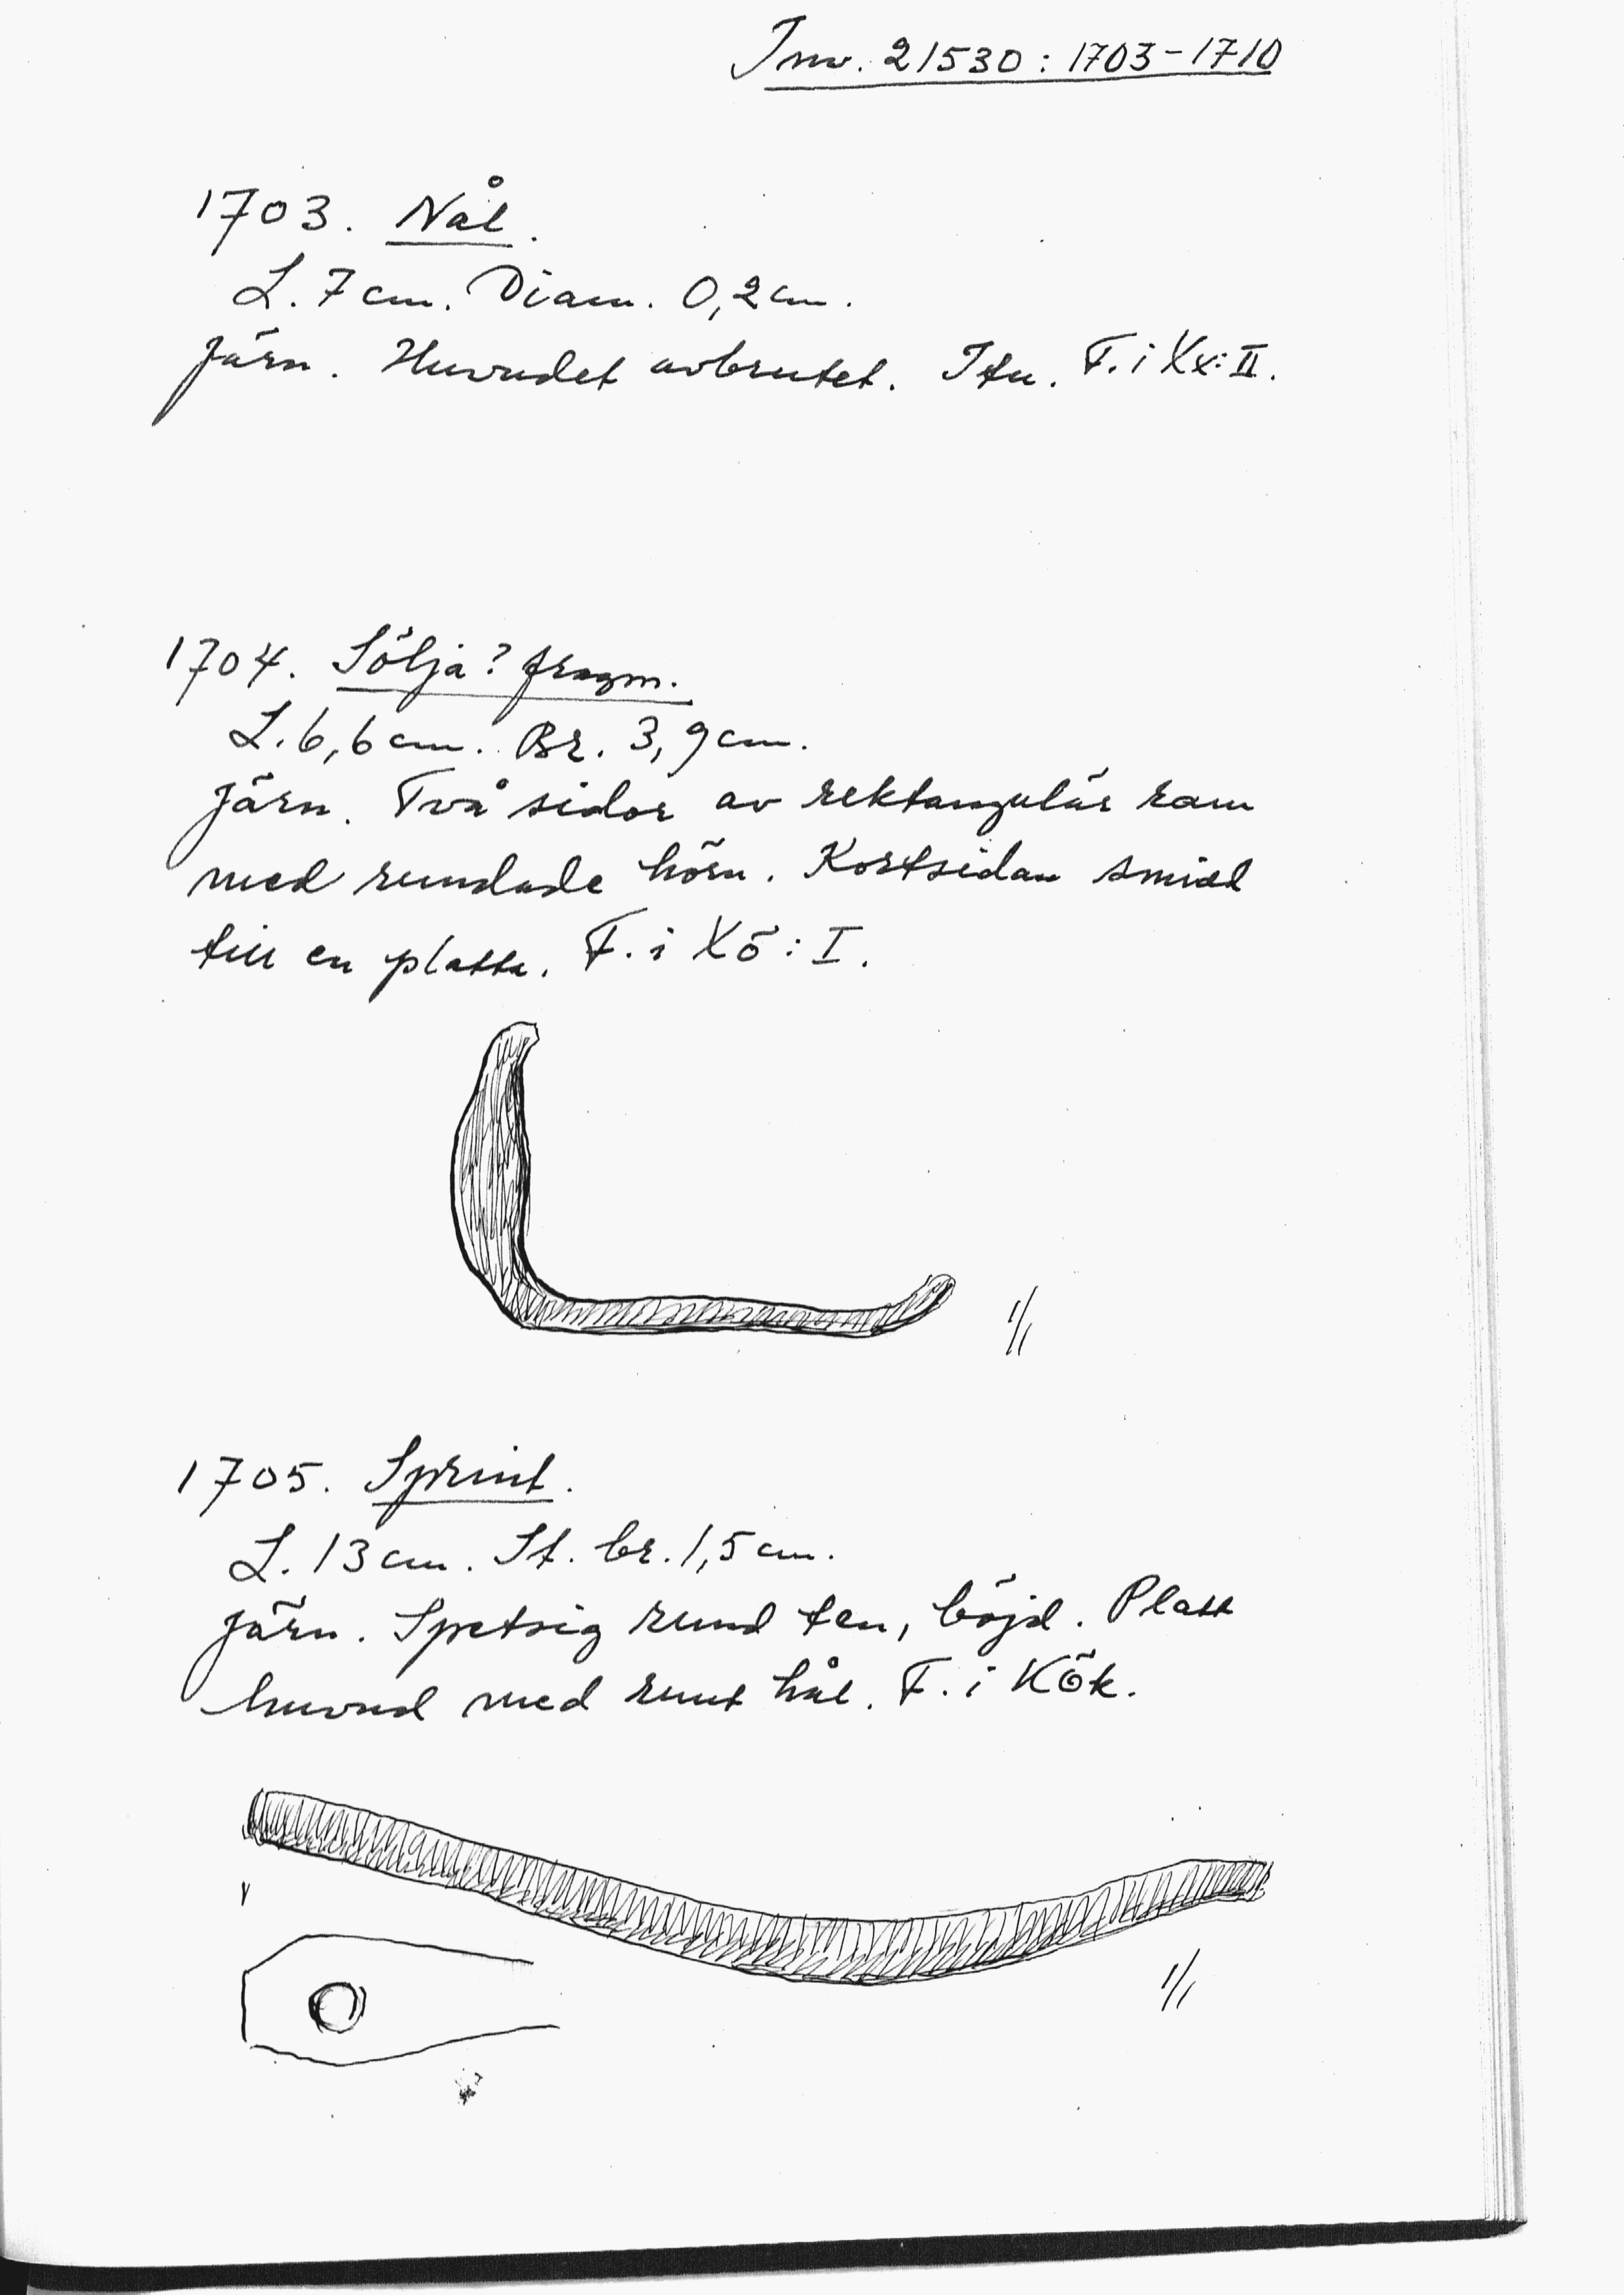 Inv. 21530 : 1703-1710
1703. Nål.
L. 7 cm. Diam. 0,2 cm.
Järn. Huvudet avbrutet. Itu. F. i Xx: II.
1704. Sölja? fragm.
L. 6,6 cm. Br. 3,9 cm.
Järn. Två sidor av rektangulär ram
med rundade hörn. Kortsidan smidd
till en platta. F. i Xö: I.
1/1
1705. Sprint.
L. 13 cm. St. br. 1,5 cm.
Järn. Spetsig rund ten, böjd. Platt
huvud med runt hål. F. i Kök.
1/1